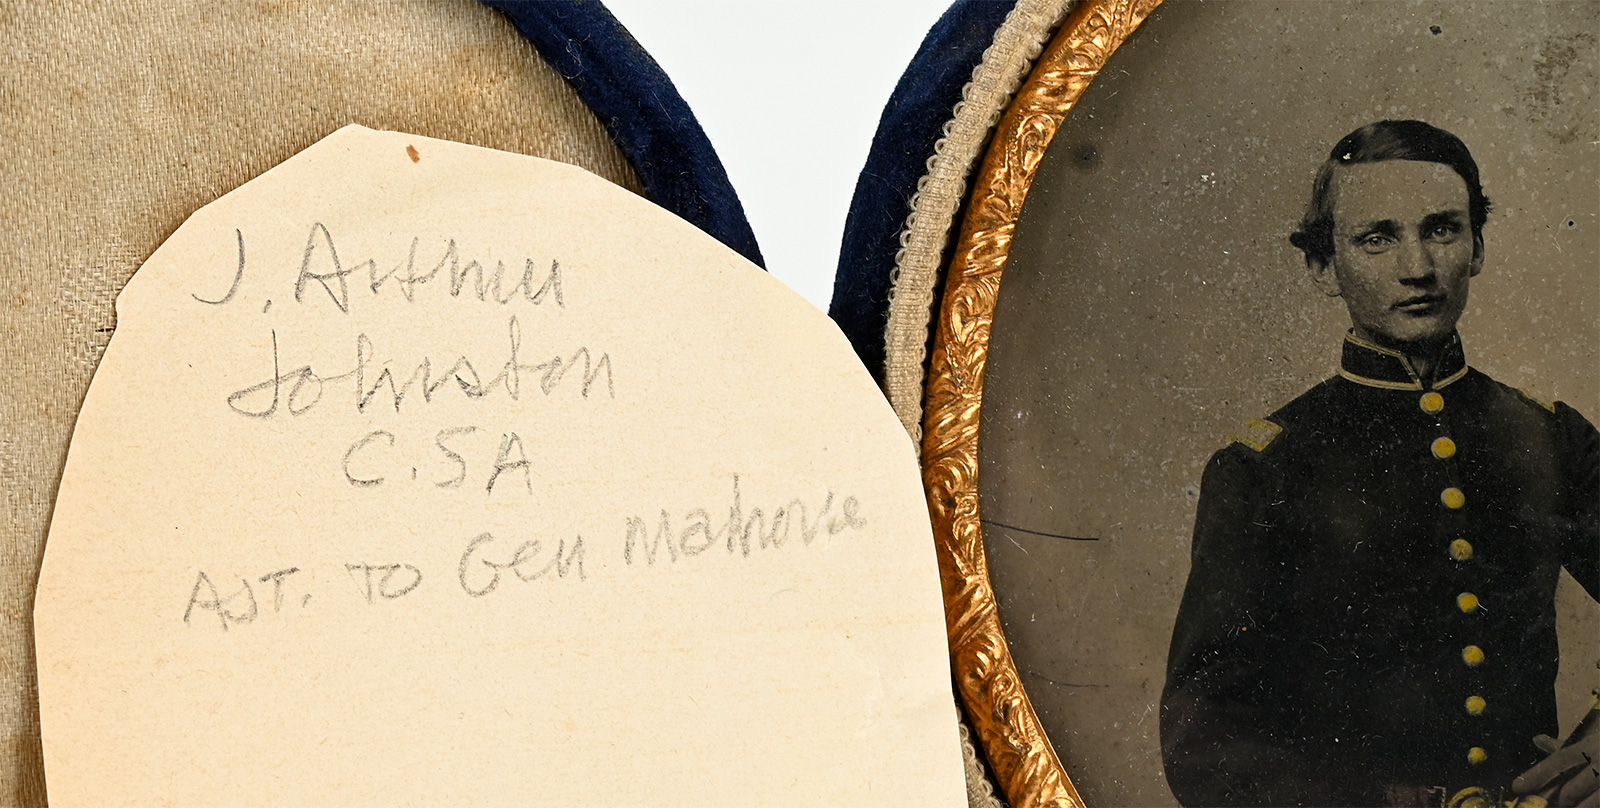 J. Arthur
Johnston
C.SA
AJT. TO Gen Mahone